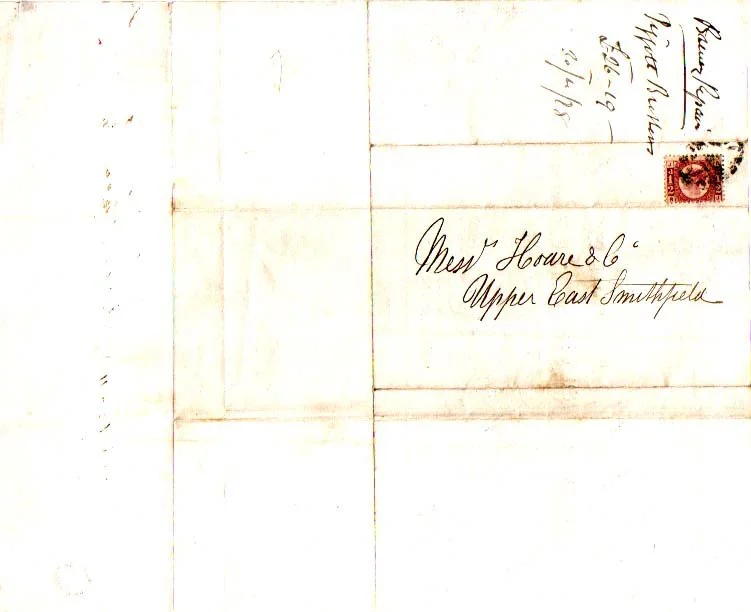 Banner Repair
Piggott Brothers
£26-19-
20/4/78
Messrs Hoare & Co
Upper East Smithfield